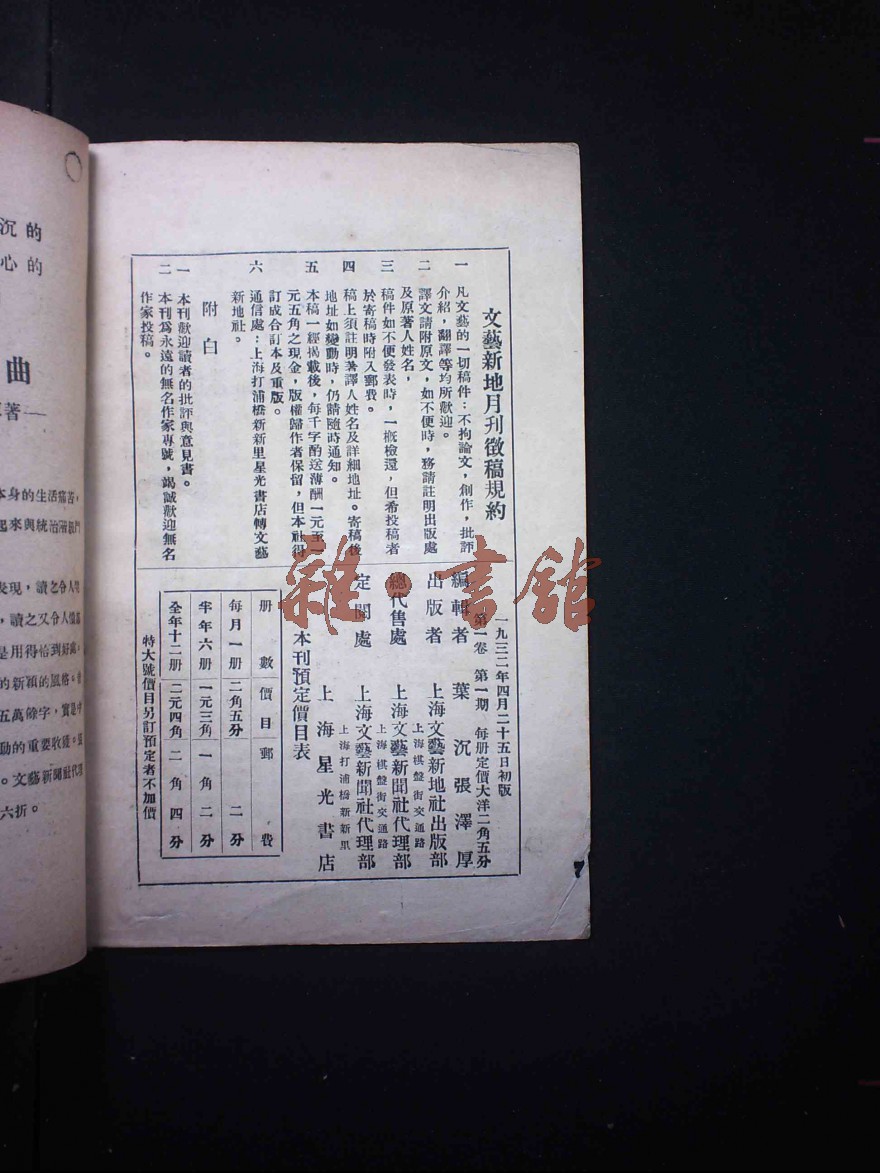 文藝新地月刊徵稿規約
一 凡文藝的一切稿件：不拘論文，創作，批評
介紹，翻譯等均所歡迎。
二 譯文請附原文，如不便時，務請註明出版處
及原著人姓名，
三 稿件如不便發表時，一概檢還，但希投稿者
於寄稿時附入郵費。
四 稿上須註明著譯人姓名及詳細地址。寄稿後
地址如變動時，仍請隨時通知。
五 本稿一經揭載後，每千字酌送薄酬一元至一
元五角之現金，版權歸作者保留，但本社得
訂成合訂本及重版。
六 通信處：上海打浦橋新新里星光書店轉文藝
新地社。
附白
一 本刊歡迎讀者的批評與意見書。
二 本刊為永遠的無名作家專號，竭誠歡迎無名
作家投稿。
一九三二年四月二十五日初版
第一卷 第一期 每册定價大洋二角五分
編輯者 葉沉 張澤厚
出版者 上海文藝新地社出版部
上海棋盤街交通路
總代售處 上海文藝新聞社代理部
上海棋盤街交通路
定閱處 上海文藝新聞社代理部
上海打浦橋新新里
上海星光書店
本刊預定價目表
册數 價目 郵費
每月一册 二角五分 二分
半年六册 一元三角 一角二分
全年十二册 二元四角 二角四分
特大號價目另訂預定者不加價
雜·書館
沉的
心的
曲
著—
本身的生活痛苦，
起來與統治階級鬥
表現，讀之令人
，讀之又令人
是用得恰到好處。
的新穎的風格。
五萬餘字，實是
動的重要收穫。
。文藝新聞社代
六折。